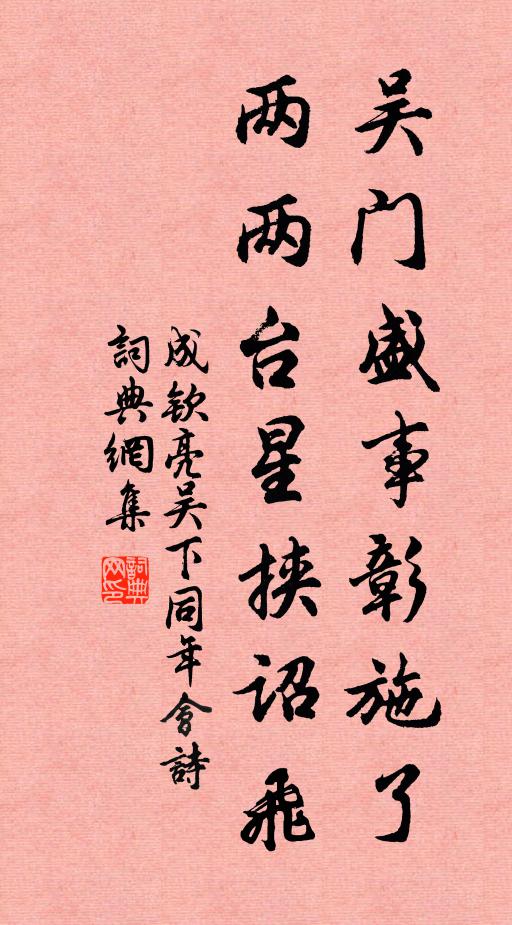 吴门盛事彰施了
两两台星挟诏飛
成欽亮吴下同年會詩
詞典網集
詞典网印